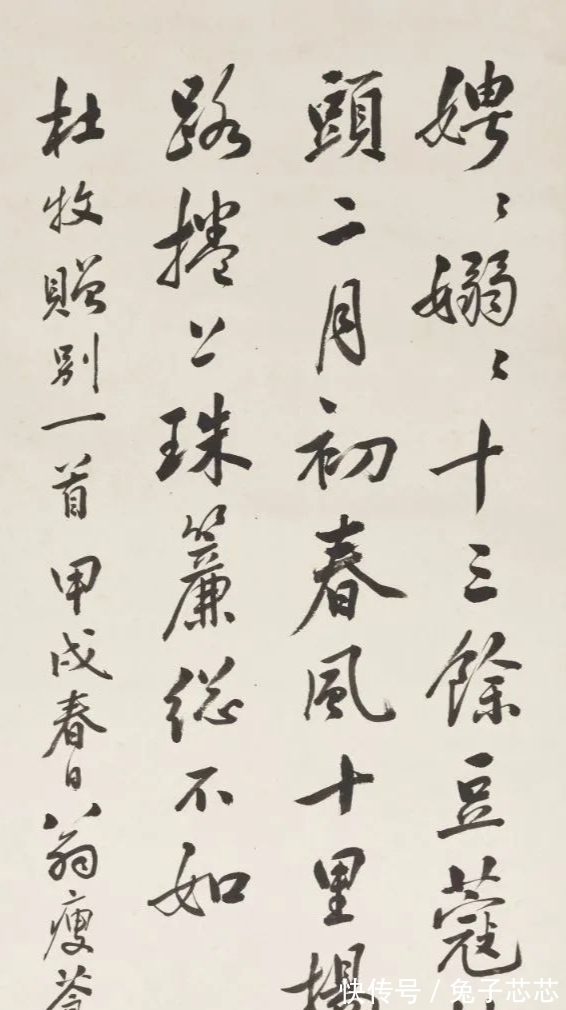 娉〻嫋〻十三餘豆蔻
頭二月初春風十里
路捲上珠簾總不如
杜牧贈別一首甲戌春日翁瘦蒼
快传号/兔子芯芯